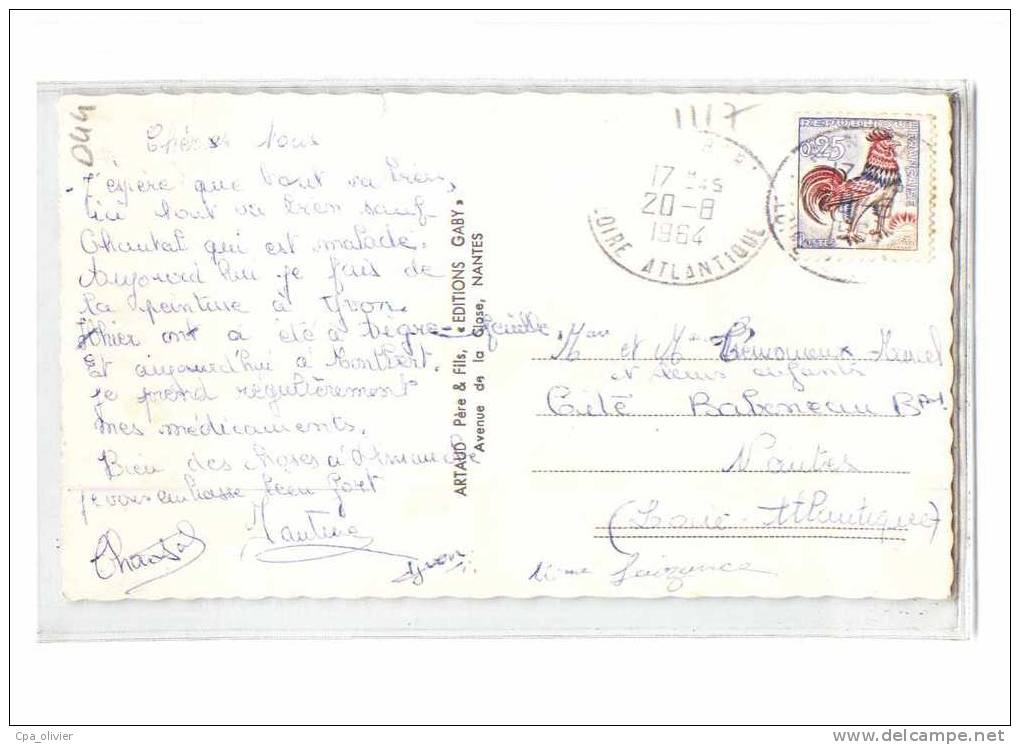 044
1117
Chers tous
J'espère que tout va bien,
ici tout va bien sauf
Chantal qui est malade.
Aujourd'hui je fais de
la peinture à Yvon.
hier ont a été à Aigrefeuille,
Et aujourd'hui à Montbert.
je prend régulièrement
mes médicaments.
Bien des choses à
je vous embrasse bien fort
Chantal
Yvon
ARTAUD Père & Fils, « EDITIONS GABY »
Avenue de la Close, NANTES
17 H45
20-8
1964
LOIRE ATLANTIQUE
REPUBLIQUE FRANÇAISE
0,25
POSTES
et Marcel
et leurs enfants
Cité Baboneau
Nantes
(Loire-Atlantique)
Cpa_olivier
www.delcampe.net